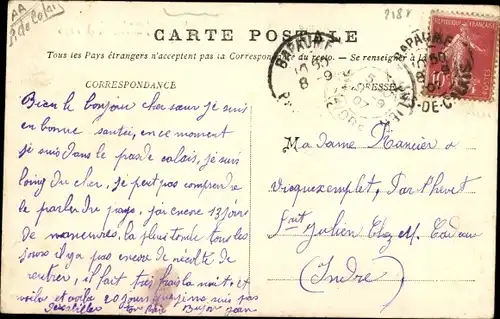 AA
P. de Calais
2188
CARTE POSTALE
Tous les Pays étrangers n'acceptent pas la Correspondance au recto. — Se renseigner à la
CORRESPONDANCE
ADRESSE
BAPAUME
8 -9
PAS-DE-CALAIS
REPUBLIQUE FRANÇAISE
10
07
INDRE
Bien le bonjour cher sœur je suis
en bonne santée, en ce moment
je suis dans le pas de calais, je suis
loing du cher, je peut pas comprendre
le parler du pays, j'ai encore 13 jours
de manœuvres, la pluie tombe tous les
jours il ya pas encore de récolte de
rentrer, il fait très frais la nuit, et
voila et voila 20 jours que je me suis pas
ton frère Jean
Madame Rancier a
par
Saint Julien Chez M.
(Indre)